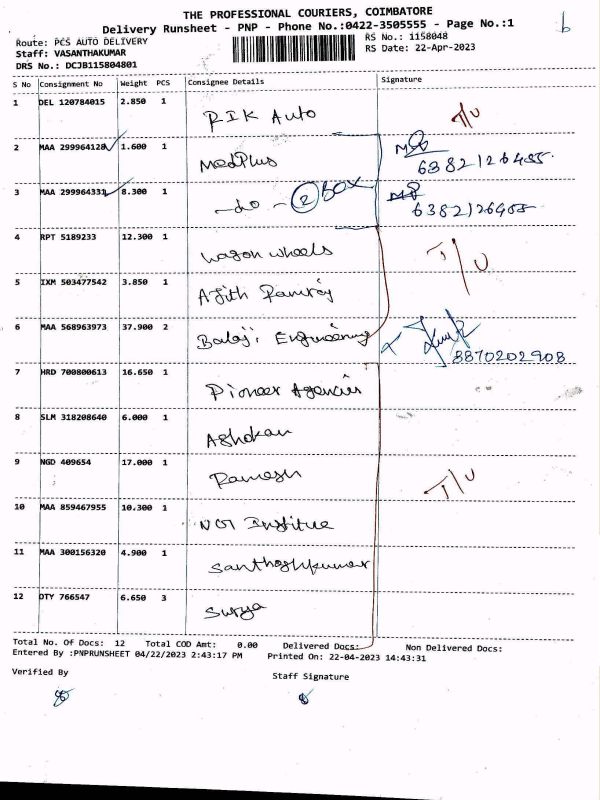 THE PROFESSIONAL COURIERS, COIMBATORE
Delivery Runsheet - PNP - Phone No.:0422-3505555 - Page No.:1
Route: PCS AUTO DELIVERY
RS No.: 1158048
Staff: VASANTHAKUMAR
RS Date: 22-Apr-2023
DRS No.: DCJB115804801
S No Consignment No Weight PCS Consignee Details Signature
1 DEL 120784015 2.850 1 RIK Auto T/U
2 MAA 299964128 1.600 1 MedPlus
3 MAA 299964331 8.300 1 -do- 2 BOX
4 RPT 5189233 12.300 1 wagon wheels T/U
5 IXM 503477542 3.850 1 Ajith
6 MAA 568963973 37.900 2 Balaji Engineering 8870202908
7 HRD 700800613 16.650 1 Pioneer Agencies
8 SLM 318208640 6.000 1 Ashokan
9 NGD 409654 17.000 1 Ramesh T/U
10 MAA 859467955 10.300 1
11 MAA 300156320 4.900 1 Santhoshkumar
12 OTY 766547 6.650 3 Surya
Total No. Of Docs: 12 Total COD Amt: 0.00 Delivered Docs: Non Delivered Docs:
Entered By :PNPRUNSHEET 04/22/2023 2:43:17 PM Printed On: 22-04-2023 14:43:31
Verified By
Staff Signature